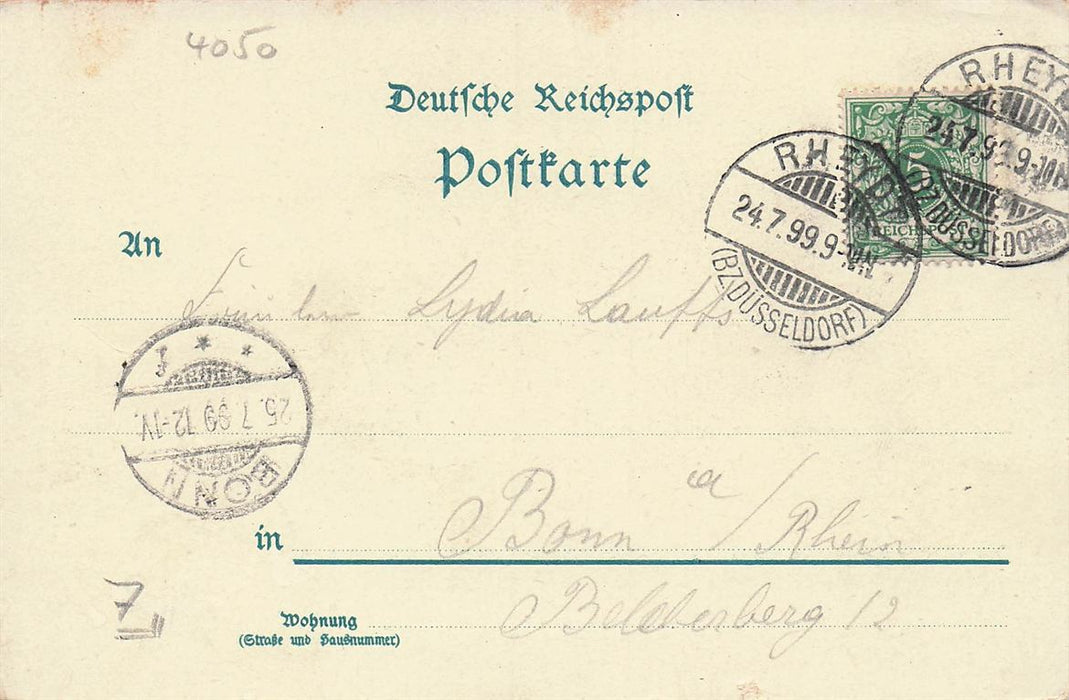 4050
Deutsche Reichspost
Postkarte
RHEYDT
24.7.99.9-10N.
(BZ.DÜSSELDORF)
RHEY
24.7.99.9-10N
(BZ.DÜSSELDORF)
5
REICHSPOST
An
Fräulein Lydia Lauffs
BONN
25.7.99 12-1V.
in Bonn a/Rhein
7
Wohnung
(Straße und Hausnummer)
Belderberg 12